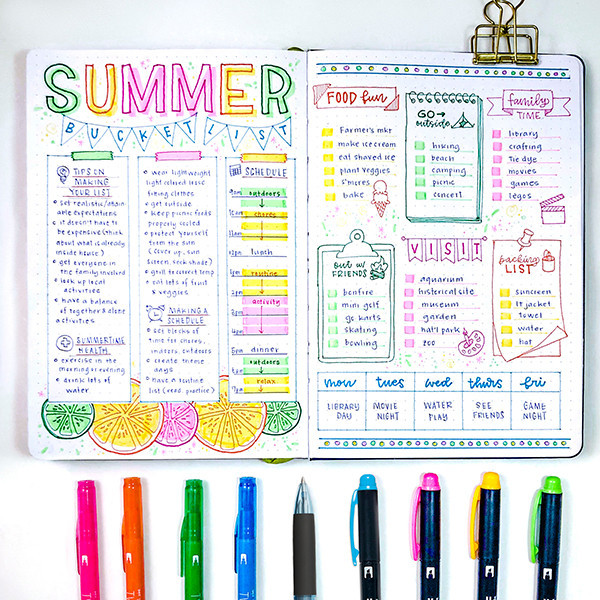 SUMMER
BUCKET LIST
TIPS ON
MAKING
YOUR LIST
set realistic/attain-
able expectations
it doesn't have to
be expensive (think
about what is already
inside house)
get everyone in
the family involved
look up local
activities
have a balance
of together & alone
activities
SUMMERTIME
HEALTH
exercise in the
morning or evening
drink lots of
water
wear lightweight
light colored loose
fitting clothes
get outside
keep picnic foods
properly sealed
protect yourself
from the sun
(cover up, sun
screen, seek shade)
grill to correct temp
eat lots of fruit
& veggies
MAKING A
SCHEDULE
set blocks of
time for chores,
indoors, outdoors
create theme
days
have a routine
list (read, practice)
SCHEDULE
9am outdoors
10am chores
11am
12pm lunch
1pm routine
2pm
3pm activity
4pm
5pm dinner
6pm outdoors
7pm relax
FOOD fun
Farmer's mkt
make ice cream
eat shaved ice
plant veggies
s'mores
bake
GO
outside
hiking
beach
camping
picnic
concert
family
TIME
library
crafting
tie dye
movies
games
legos
out w/
FRIENDS
bonfire
mini golf
go karts
skating
bowling
VISIT
aquarium
historical site
museum
garden
nat'l park
zoo
packing
LIST
sunscreen
lt jacket
towel
water
hat
mon tues wed thurs fri
LIBRARY DAY
MOVIE NIGHT
WATER PLAY
SEE FRIENDS
GAME NIGHT